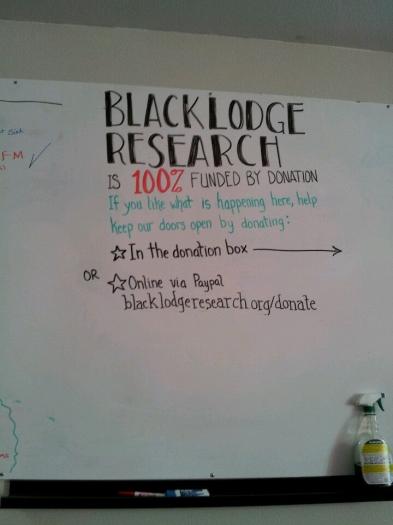 BLACK LODGE
RESEARCH
IS 100% FUNDED BY DONATION
If you like what is happening here, help
keep our doors open by donating:
☆ In the donation box →
OR ☆ Online via Paypal
blacklodgeresearch.org/donate
F-M